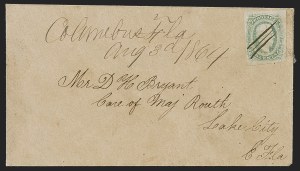 Columbus Fla
Aug 3d 1864
Mr D H Bryant
Care of Maj Routh
Lake City
E Fla